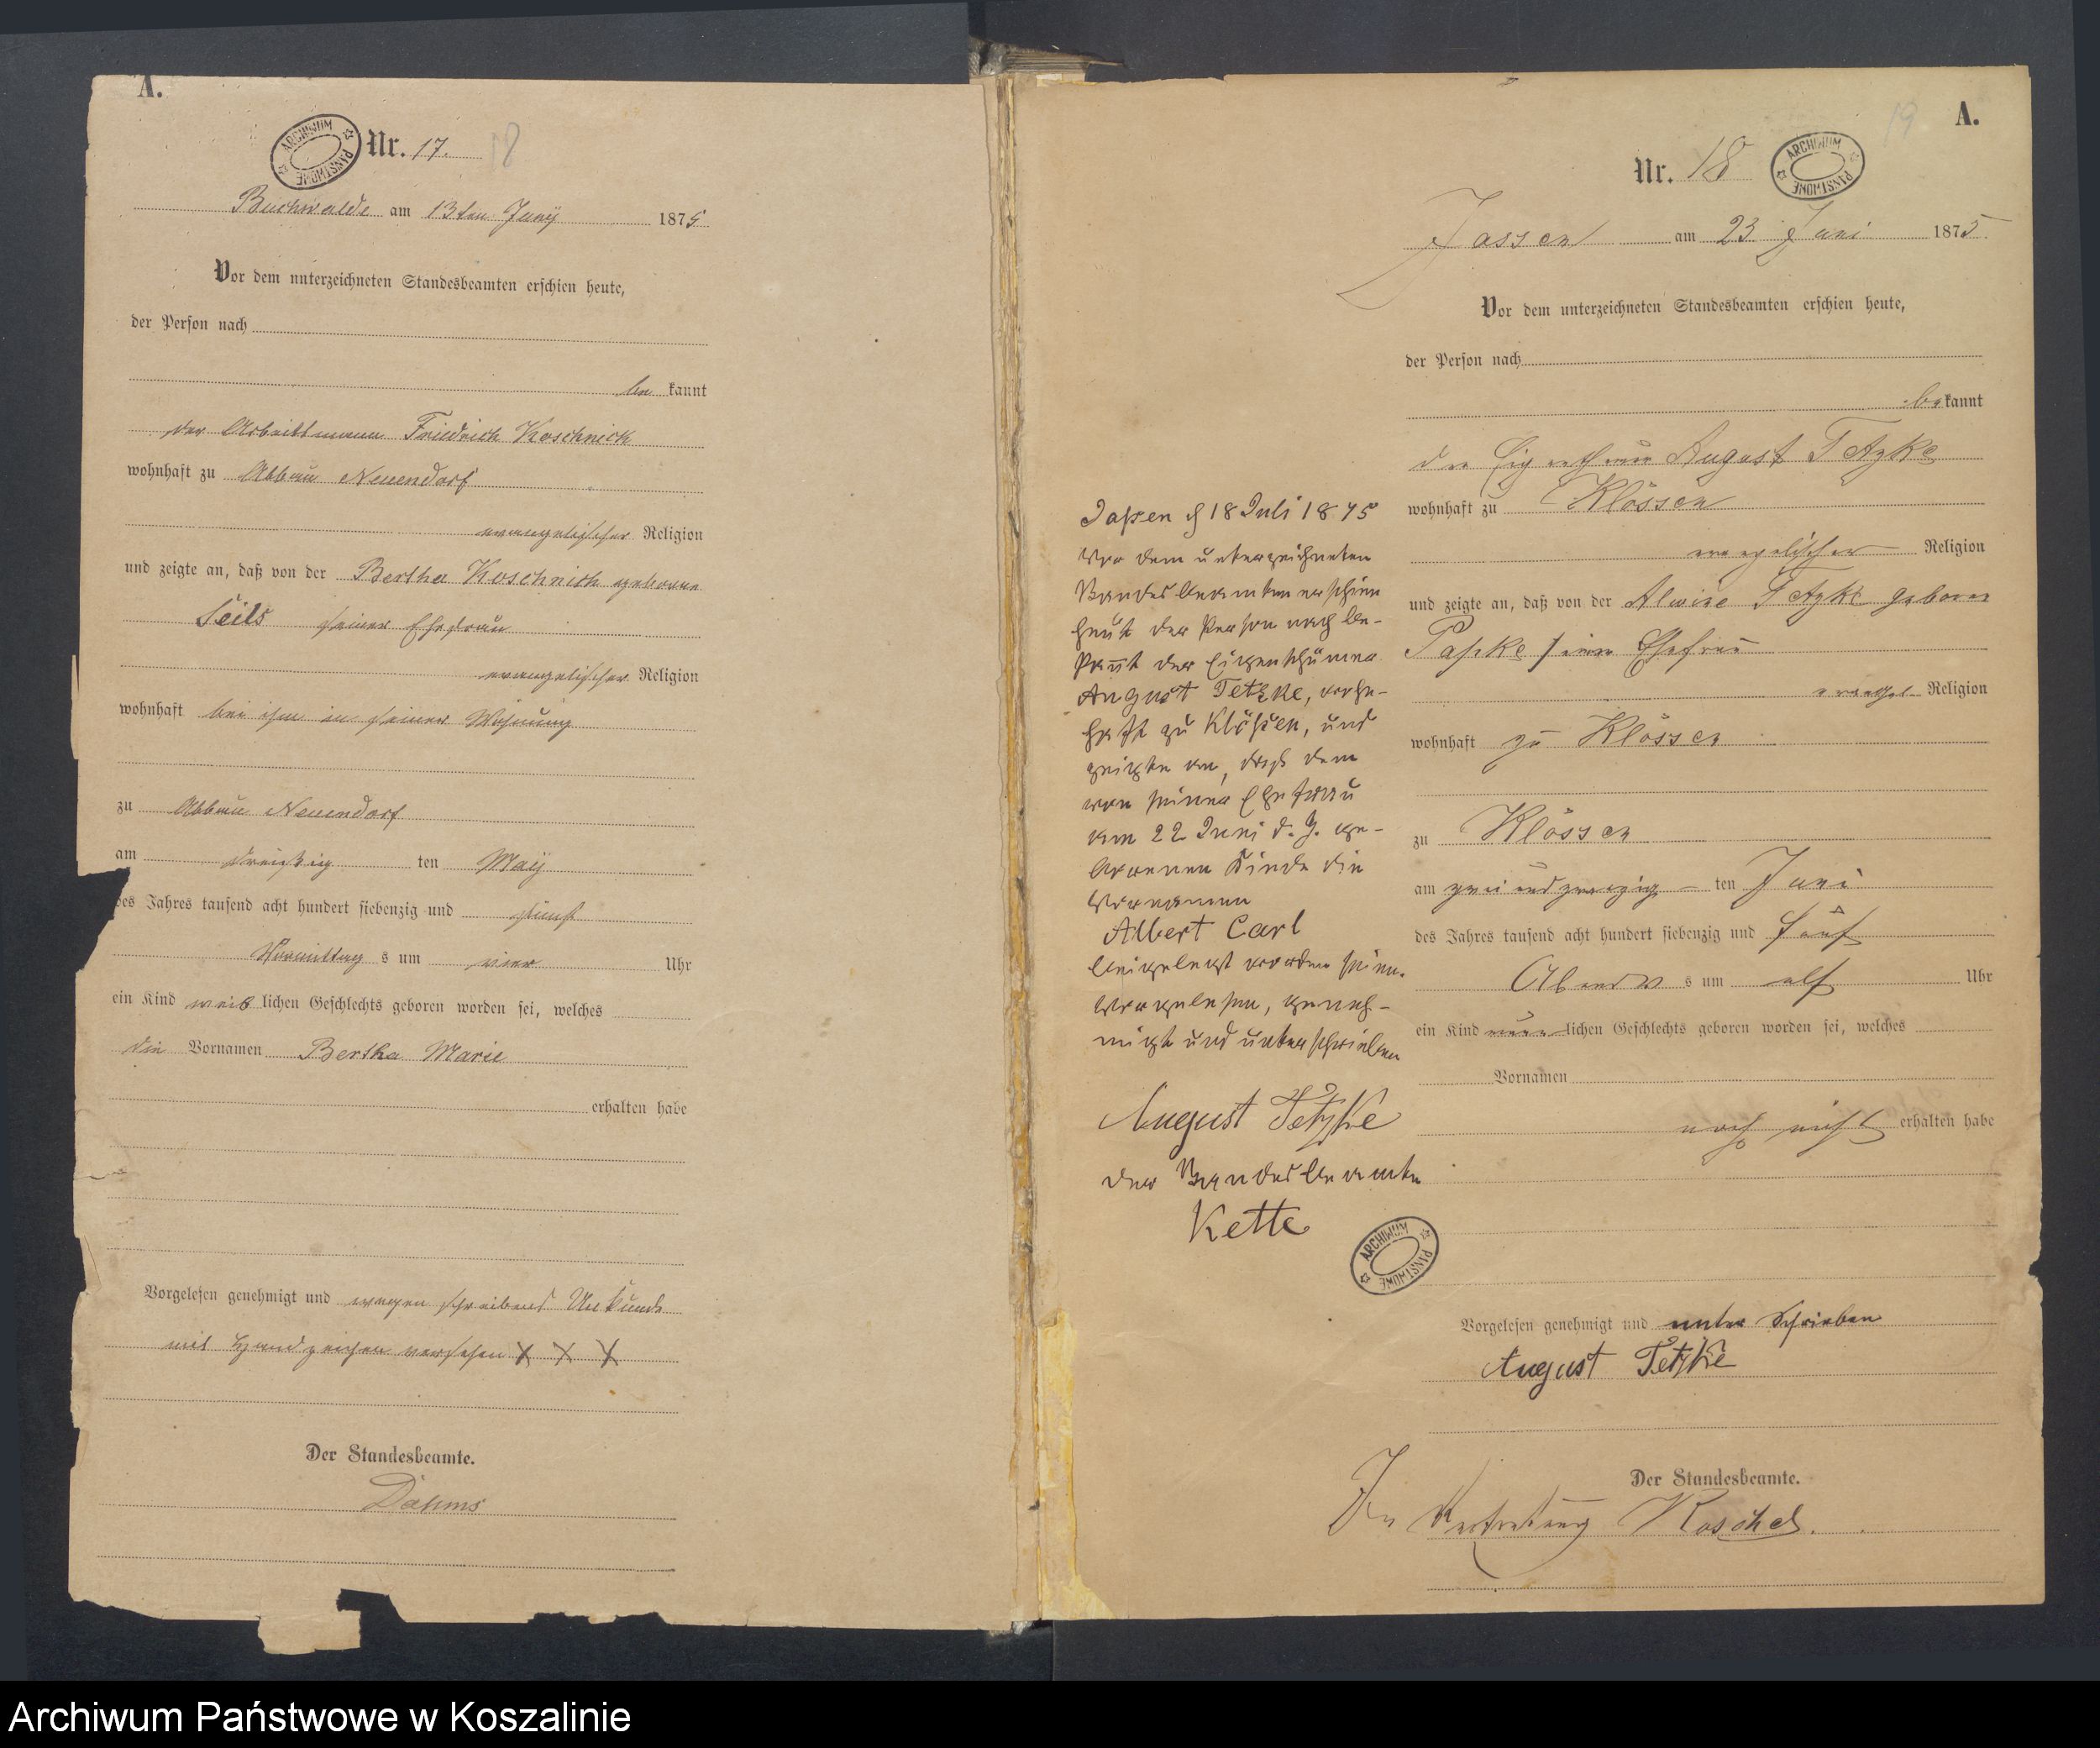 A.
ARCHIWUM PAŃSTWOWE
Nr. 17. 18
Buchwalde am 13ten Juny 1875
Vor dem unterzeichneten Standesbeamten erschien heute,
der Person nach
be kannt
der Arbeitsmann Friedrich Koschnick
wohnhaft zu Abbau Neuendorf
evangelischer Religion
und zeigte an, daß von der Bertha Koschnick geborene
Seils seiner Ehefrau
evangelischer Religion
wohnhaft bei ihm in seiner Wohnung
zu Abbau Neuendorf
am dreißig ten May
des Jahres tausend acht hundert siebenzig und fünf
Vormittag s um vier Uhr
ein Kind weib lichen Geschlechts geboren worden sei, welches
die Vornamen Bertha Marie
erhalten habe
Vorgelesen genehmigt und wegen schreibens Unkunde
mit Handzeichen versehen X X X
Der Standesbeamte.
Dahms
19 A.
Nr. 18
ARCHIWUM PAŃSTWOWE
Jassen am 23 Juni 1875.
Vor dem unterzeichneten Standesbeamten erschien heute,
der Person nach
be kannt
der Eigenthümer August Tetzke
wohnhaft zu Klössen
evangelischer Religion
und zeigte an, daß von der Alwine Tetzke geboren
Papke seiner Ehefrau
evangel. Religion
wohnhaft zu Klössen
zu Klössen
am zwei und zwanzig ten Juni
des Jahres tausend acht hundert siebenzig und fünf
Abend s um elf Uhr
ein Kind männ lichen Geschlechts geboren worden sei, welches
Vornamen
noch nicht erhalten habe
Vorgelesen genehmigt und unter schrieben
August Tetzke
Der Standesbeamte.
In Vertretung Koschel.
Jassen d 18 Juli 1875
Vor dem unterzeichneten
Standesbeamten erschien
heut der Person nach be-
kannt der Eigenthümer
August Tetzke, wohn-
haft zu Klössen, und
zeigte an, daß dem
von seiner Ehefrau
am 22 Juni d. J. ge-
borenen Kinde die
Vornamen
Albert Carl
beigelegt worden seien.
Vorgelesen, geneh-
migt und unterschrieben
August Tetzke
der Standesbeamte
Kette
ARCHIWUM PAŃSTWOWE
Archiwum Państwowe w Koszalinie